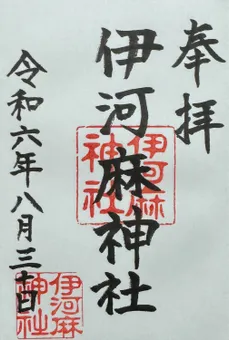 奉拝
伊河麻神社
伊河麻
神社
令和六年八月三十四日
伊河麻
神社